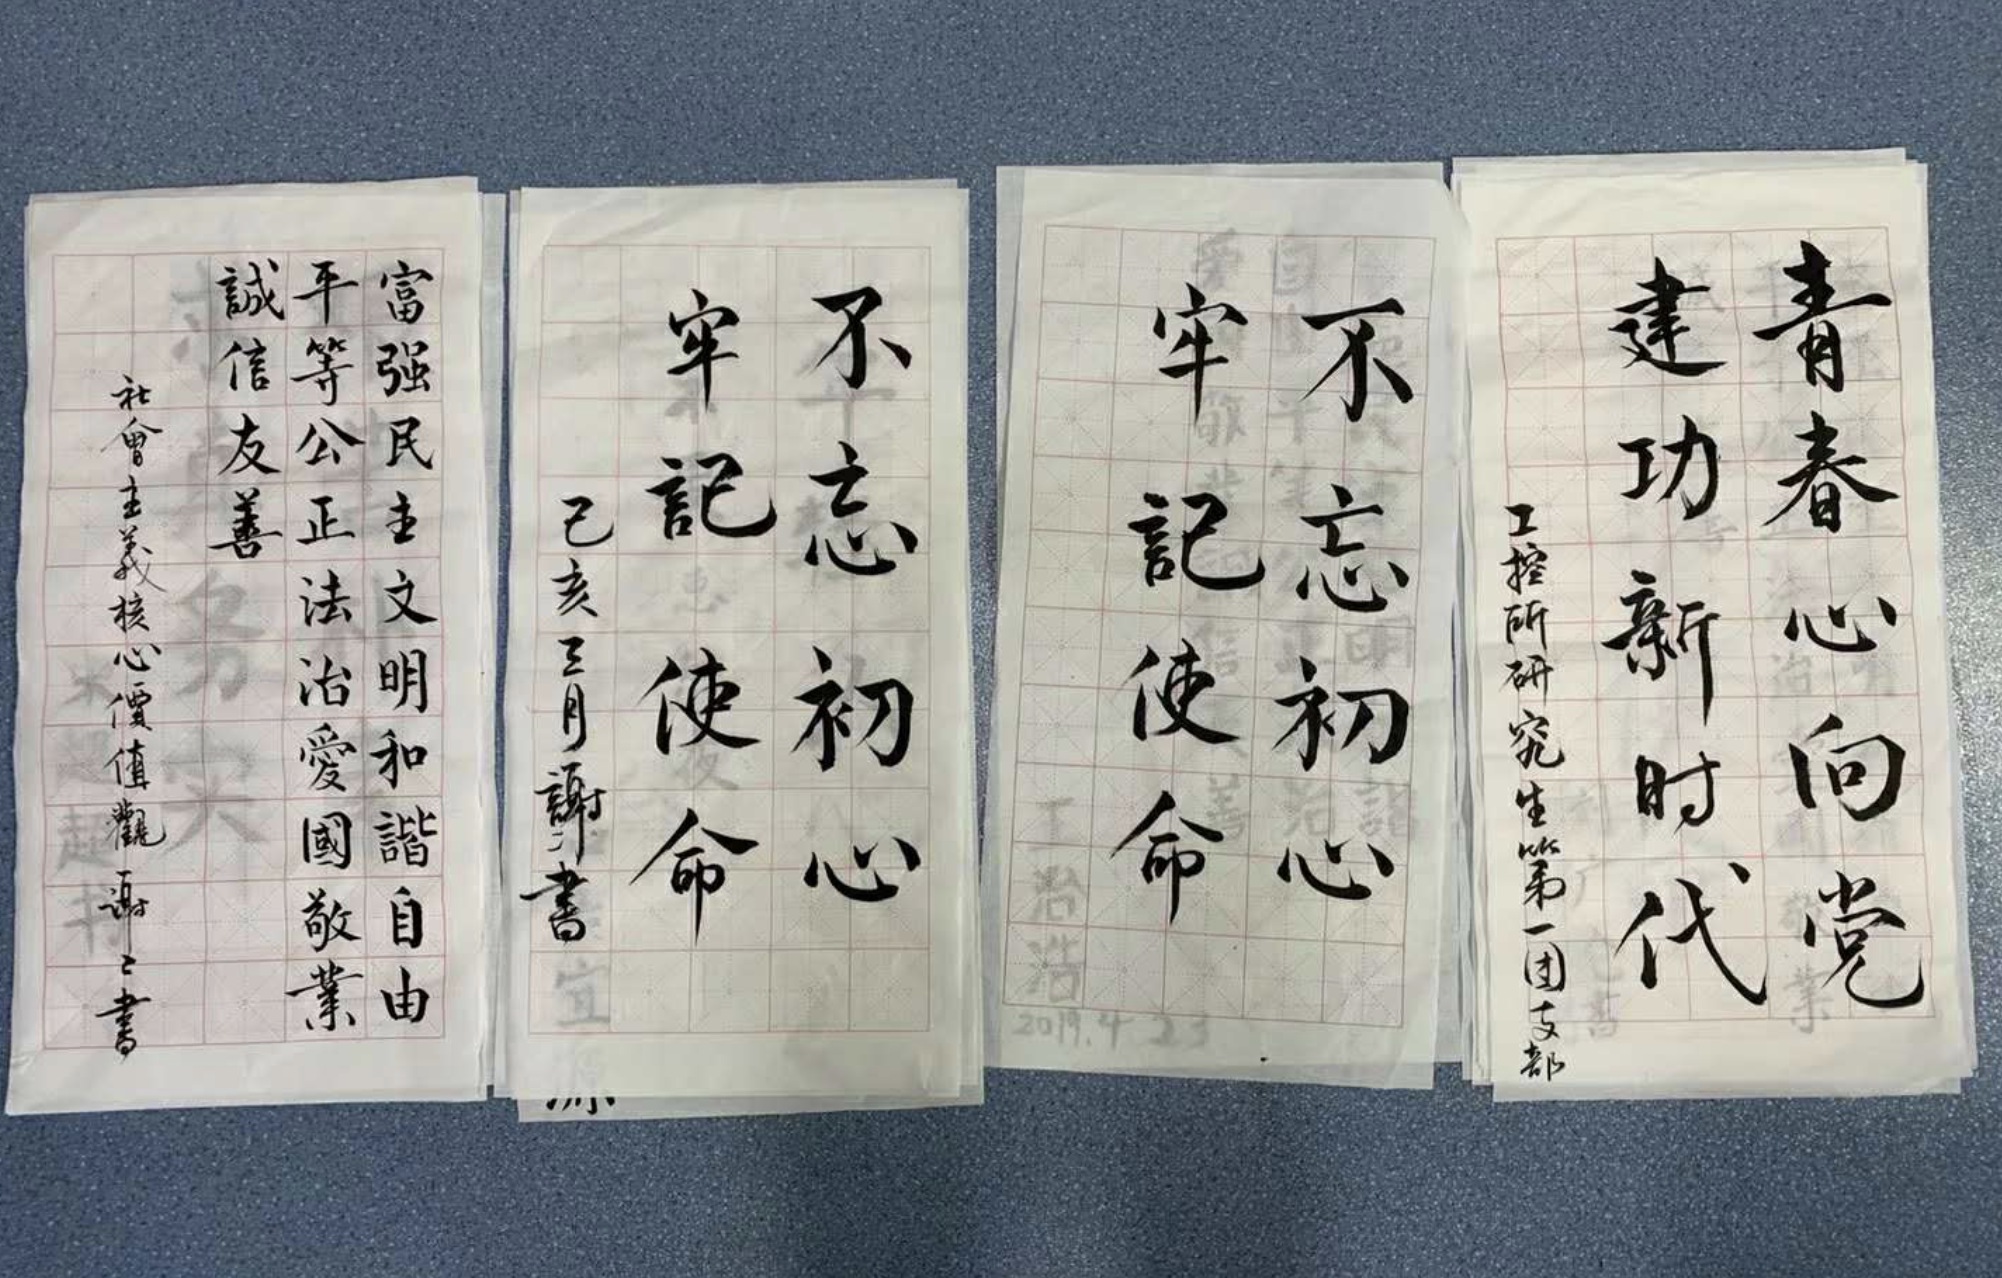 青春心向党
建功新时代
工控所研究生第一团支部
不忘初心
牢記使命
2019.4.23
不忘初心
牢記使命
己亥三月謝々書
富强民主文明和諧自由
平等公正法治愛國敬業
誠信友善
社會主義核心價值觀謝々書